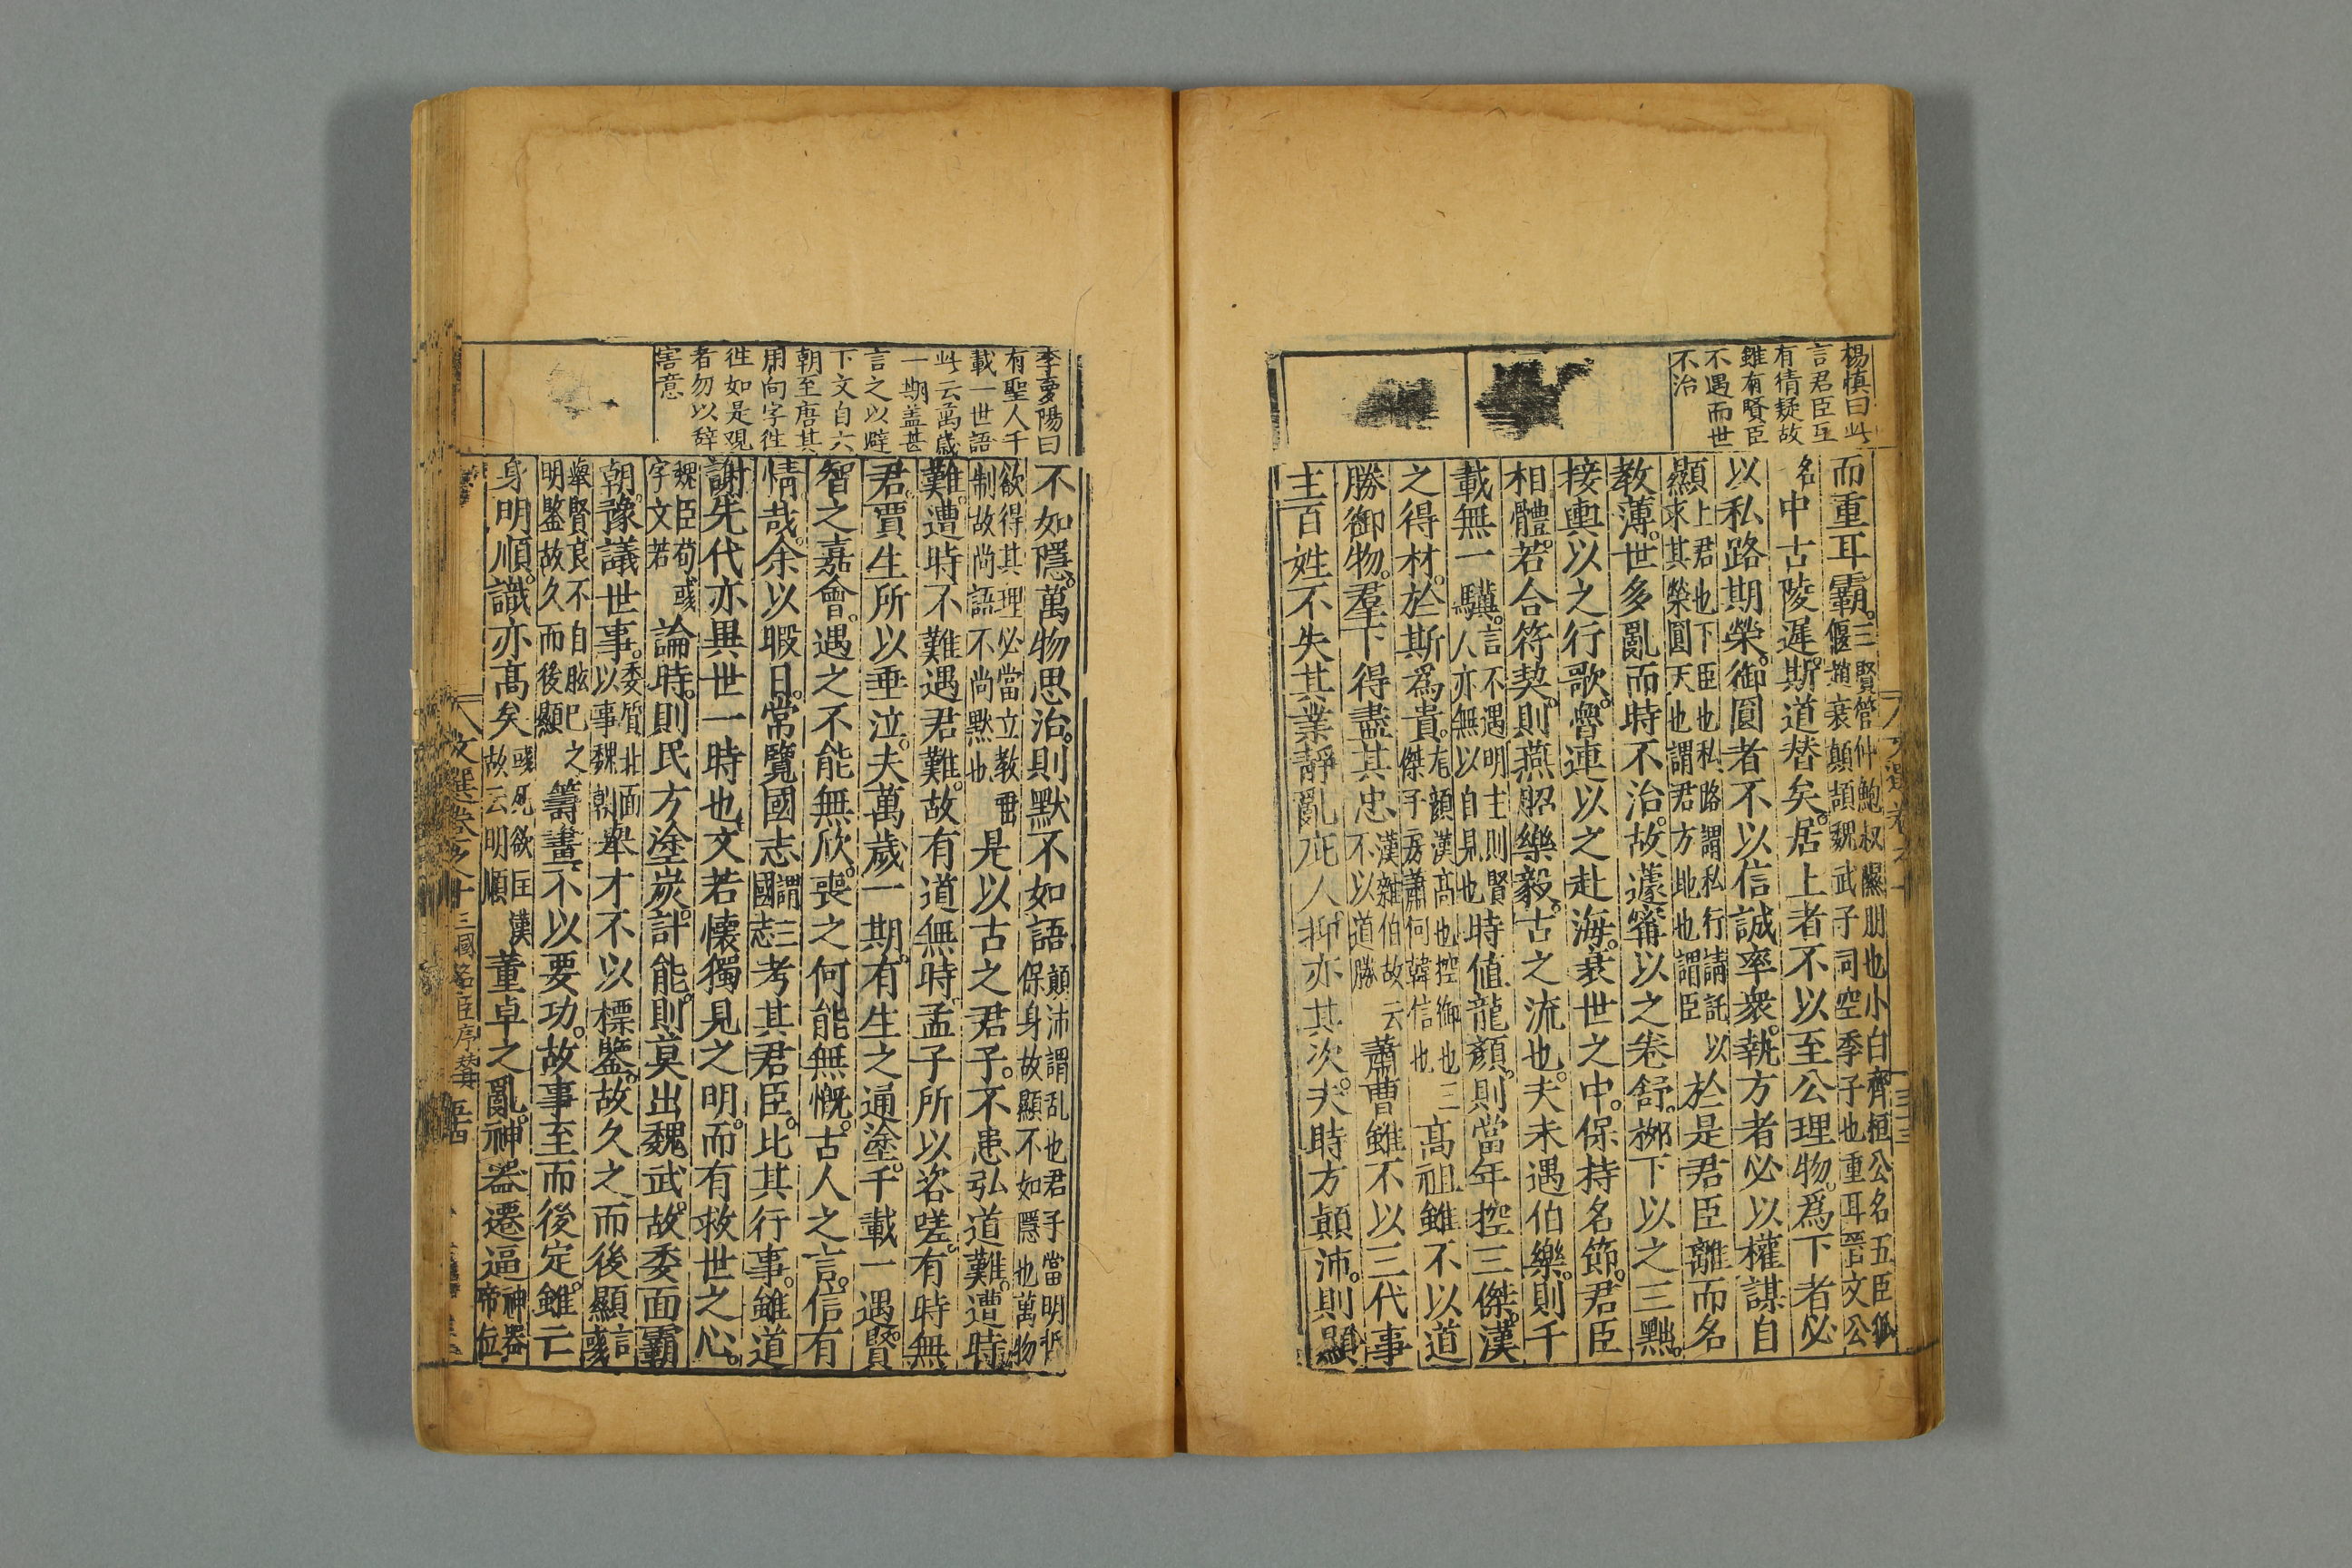 楊慎曰此
言君臣互
有猜疑故
雖有賢臣
不遇而世
不治
而重耳霸三賢管仲鮑叔隰朋也小白齊桓公名五臣狐
偃趙衰顛頡魏武子司空季子也重耳晉文公
名中古陵遲斯道替矣居上者不以至公理物爲下者必
以私路期榮御圓者不以信誠率衆執方者必以權謀自
顯上君也下臣也私路謂私行請託以
求其榮圓天也謂君方地也謂臣於是君臣離而名
教薄世多亂而時不治故蘧寗以之卷舒栁下以之三黜
接輿以之行歌魯連以之赴海衰世之中保持名節君臣
相體若合符契則燕昭樂毅古之流也夫未遇伯樂則千
載無一驥言不遇明主則賢
人亦無以自見也時値龍顏則當年控三傑漢
之得材於斯爲貴龍顏漢高也控御也三
傑子房蕭何韓信也高祖雖不以道
勝御物羣下得盡其忠漢雜伯故云
不以道勝蕭曹雖不以三代事
主百姓不失其業靜亂庇人抑亦其次夫時方顛沛則顯
李夢陽曰
有聖人千
載一世語
此云萬歲
一期盖甚
言之以避
下文自六
朝至唐其
用向字徃
徃如是觀
者勿以辞
害意
不如隱萬物思治則默不如語顛沛謂乱也君子當明哲
保身故顯不如隱也萬物
欲得其理必當立教𠕋
制故尚語不尚默也是以古之君子不患弘道難遭時
難遭時不難遇君難故有道無時孟子所以咨嗟有時無
君賈生所以垂泣夫萬歲一期有生之通塗千載一遇賢
智之嘉會遇之不能無欣喪之何能無慨古人之言信有
情哉余以暇日常覽國志謂三
國志考其君臣比其行事雖道
謝先代亦異世一時也文若懷獨見之明而有救世之心
魏臣荀彧
字文若論時則民方塗炭計能則莫出魏武故委面霸
朝豫議世事委質北面
以事魏朝舉才不以標鑒故久之而後顯言彧
舉賢良不自眩巳之
明鑒故久而後顯籌畫不以要功故事至而後定雖亡
身明順識亦高矣彧死欲匡漢
故云明順董卓之亂神器遷逼神器
帝位
文選卷之十 三國名臣序贊